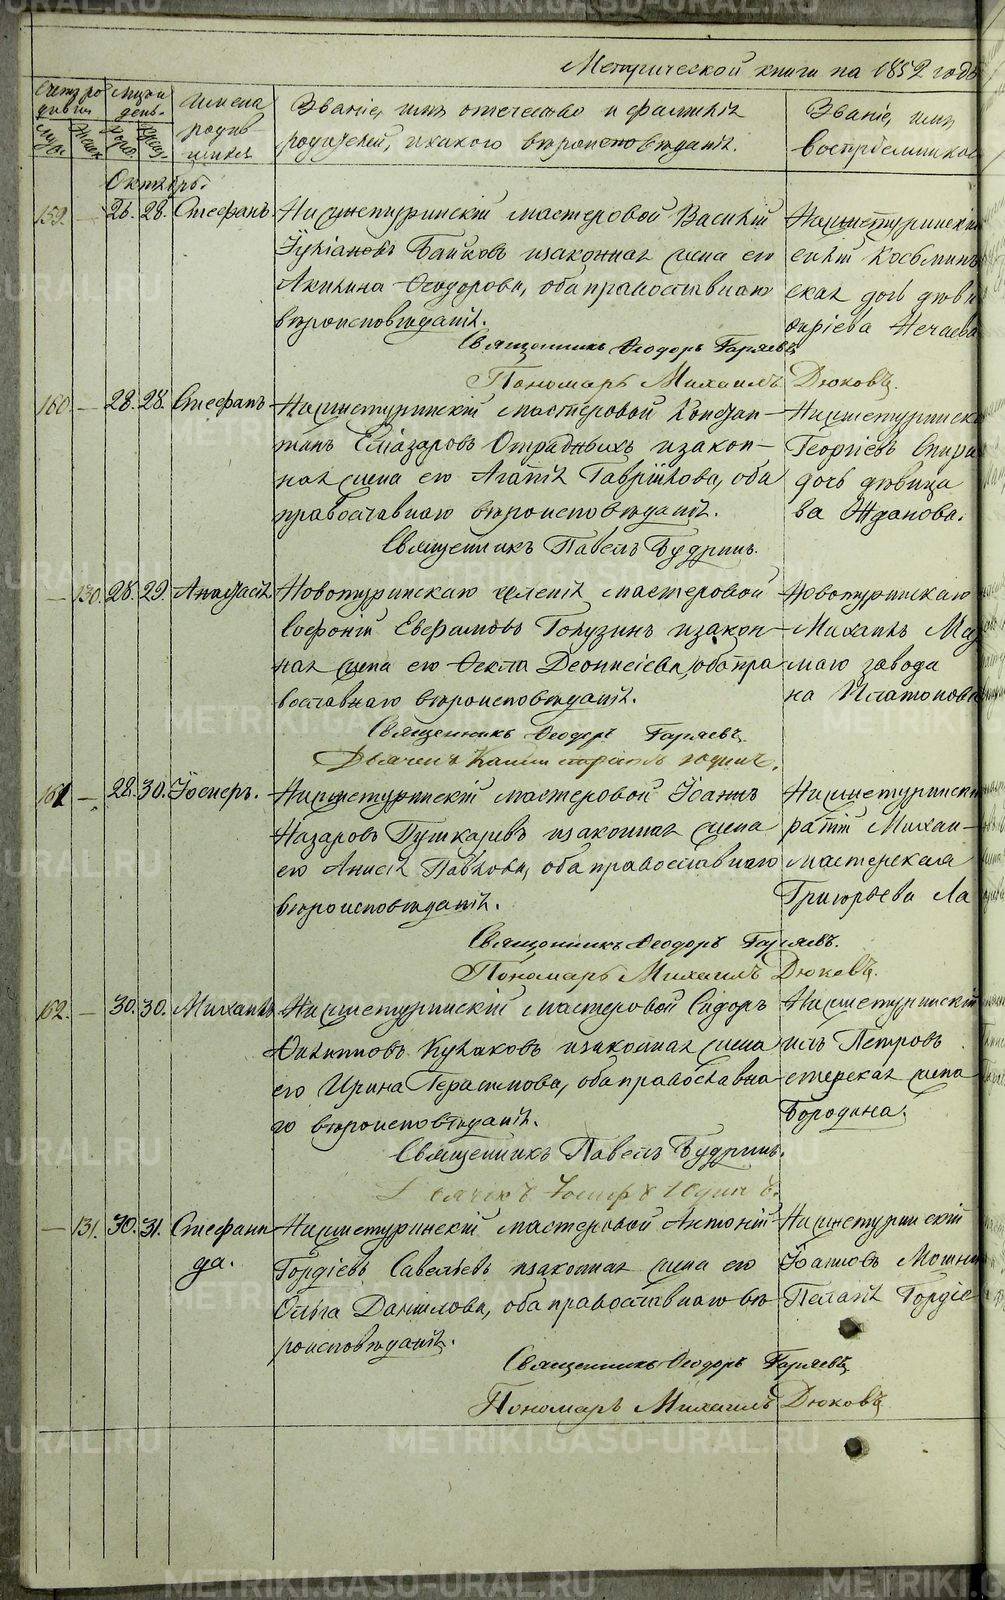 METRIKI.GASO-URAL.RU
Метрической книги на 1852 годъ
Счетъ родившихся
Мѣсяцъ и день
Имена родившихся
Званіе, имя отечество и фамилія
родителей, и какого вѣроисповѣданія.
Званіе, имя
воспріемников
Октябрь.
159. — 26. 28. Стефанъ
Нижнетуринскій мастеровой Василій
Лукіановъ Байковъ и законная жена его
Акилина Ѳеодорова, оба православнаго
вѣроисповѣданія.
Нижнетуринскій
Косьмин
ская дочь дѣви
Нечаева
Священникъ Ѳеодоръ Гаряевъ
Пономарь Михаилъ Дюковъ.
160. — 28. 28. Стефанъ
Нижнетуринскій мастеровой Констан-
тинъ Еліазаровъ Отрадныхъ и закон-
ная жена его Агапія Гавріилова, оба
православнаго вѣроисповѣданія.
Нижнетуринск
Георгіевъ Спири
дочь дѣвица
ва Жданова.
Священникъ Павелъ Будринъ.
— 130. 28. 29. Анастасія
Новотуринскаго селенія мастеровой
Софроній Евфимовъ Голузинъ и закон-
ная жена его Ѳекла Деонисіева, оба пра
вославнаго вѣроисповѣданія.
Новотуринскаго
Михаилъ Ма
маго завода
на Платонова
Священникъ Ѳеодоръ Гаряевъ
161. — 28. 30. Іосифъ.
Нижнетуринскій мастеровой Іоаннъ
Назаровъ Пушкаревъ и законная жена
его Анисія Павлова, оба православнаго
вѣроисповѣданія.
Нижнетуринск
Михаи-
мастерская
Григорьева Ла
Священникъ Ѳеодоръ Гаряевъ.
Пономарь Михаилъ Дюковъ.
162. — 30. 30. Михаилъ
Нижнетуринскій мастеровой Сидоръ
Филипповъ Кулаковъ и законная жена
его Ирина Герасимова, оба православна-
го вѣроисповѣданія.
Нижнетуринскій
илъ Петровъ
стерская жена
Бородина.
Священникъ Павелъ Будринъ.
Дьячекъ Іосифъ Юдинъ.
— 131. 30. 31. Стефани
да.
Нижнетуринскій мастеровой Антоній
Гордіевъ Савельевъ и законная жена его
Ольга Даніилова, оба православнаго вѣ
роисповѣданія.
Нижнетуринскій
Іоанновъ Мошни
Пелагія Гордіе-
Священникъ Ѳеодоръ Гаряевъ
Пономарь Михаилъ Дюковъ
METRIKI.GASO-URAL.RU